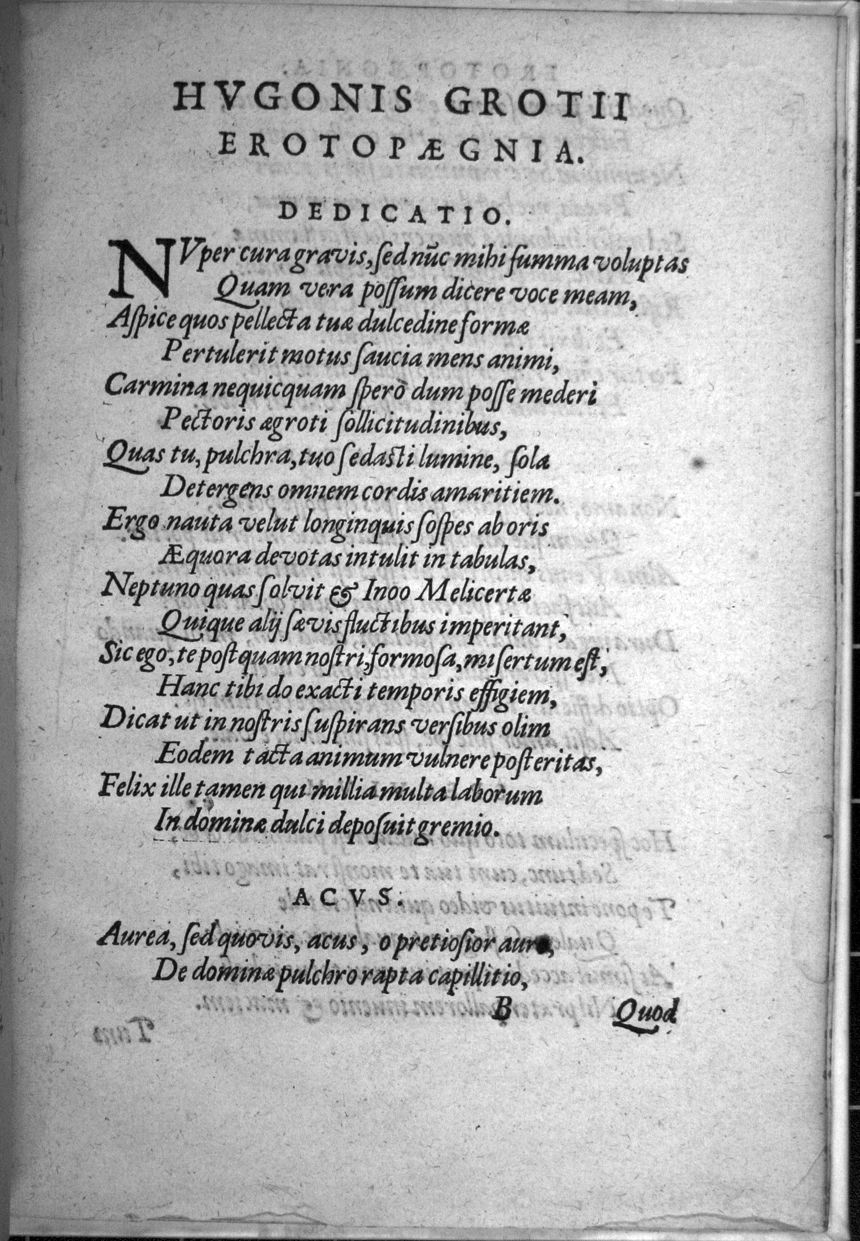 HVGONIS GROTII
EROTOPÆGNIA.
DEDICATIO.
NVper cura gravis, ſed nūc mihi ſumma voluptas
Quam vera poſſum dicere voce meam,
Aſpice quos pellecta tuæ dulcedine formæ
Pertulerit motus ſaucia mens animi,
Carmina nequicquam ſperò dum poſſe mederi
Pectoris ægroti ſollicitudinibus,
Quas tu, pulchra, tuo ſedaſti lumine, ſola
Detergens omnem cordis amaritiem.
Ergo nauta velut longinquis ſoſpes ab oris
Æquora devotas intulit in tabulas,
Neptuno quas ſolvit & Inoo Melicertæ
Quique alij ſævis fluctibus imperitant,
Sic ego, te poſtquam noſtri, formoſa, miſertum eſt,
Hanc tibi do exacti temporis effigiem,
Dicat ut in noſtris ſuſpirans verſibus olim
Eodem tacta animum vulnere poſteritas,
Felix ille tamen qui millia multa laborum
In dominæ dulci depoſuit gremio.
ACVS.
Aurea, ſed quovis, acus, o pretioſior auro,
De dominæ pulchro rapta capillitio,
B Quod